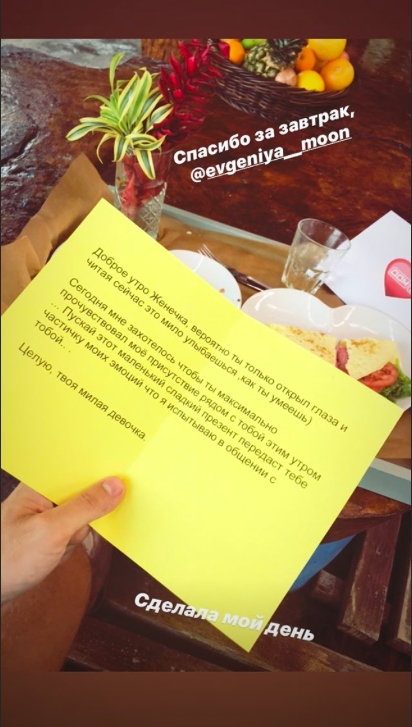 Спасибо за завтрак,
@evgeniya__moon
Доброе утро Женечка, вероятно ты только открыл глаза и
читая сейчас это мило улыбаешься ,как ты умеешь)
Сегодня мне захотелось чтобы ты максимально
прочувствовал моё присутствие рядом с тобой этим утром
... Пускай этот маленький сладкий презент передаст тебе
частичку моих эмоций что я испытываю в общении с
тобой...
Целую, твоя милая девочка
Сделала мой день